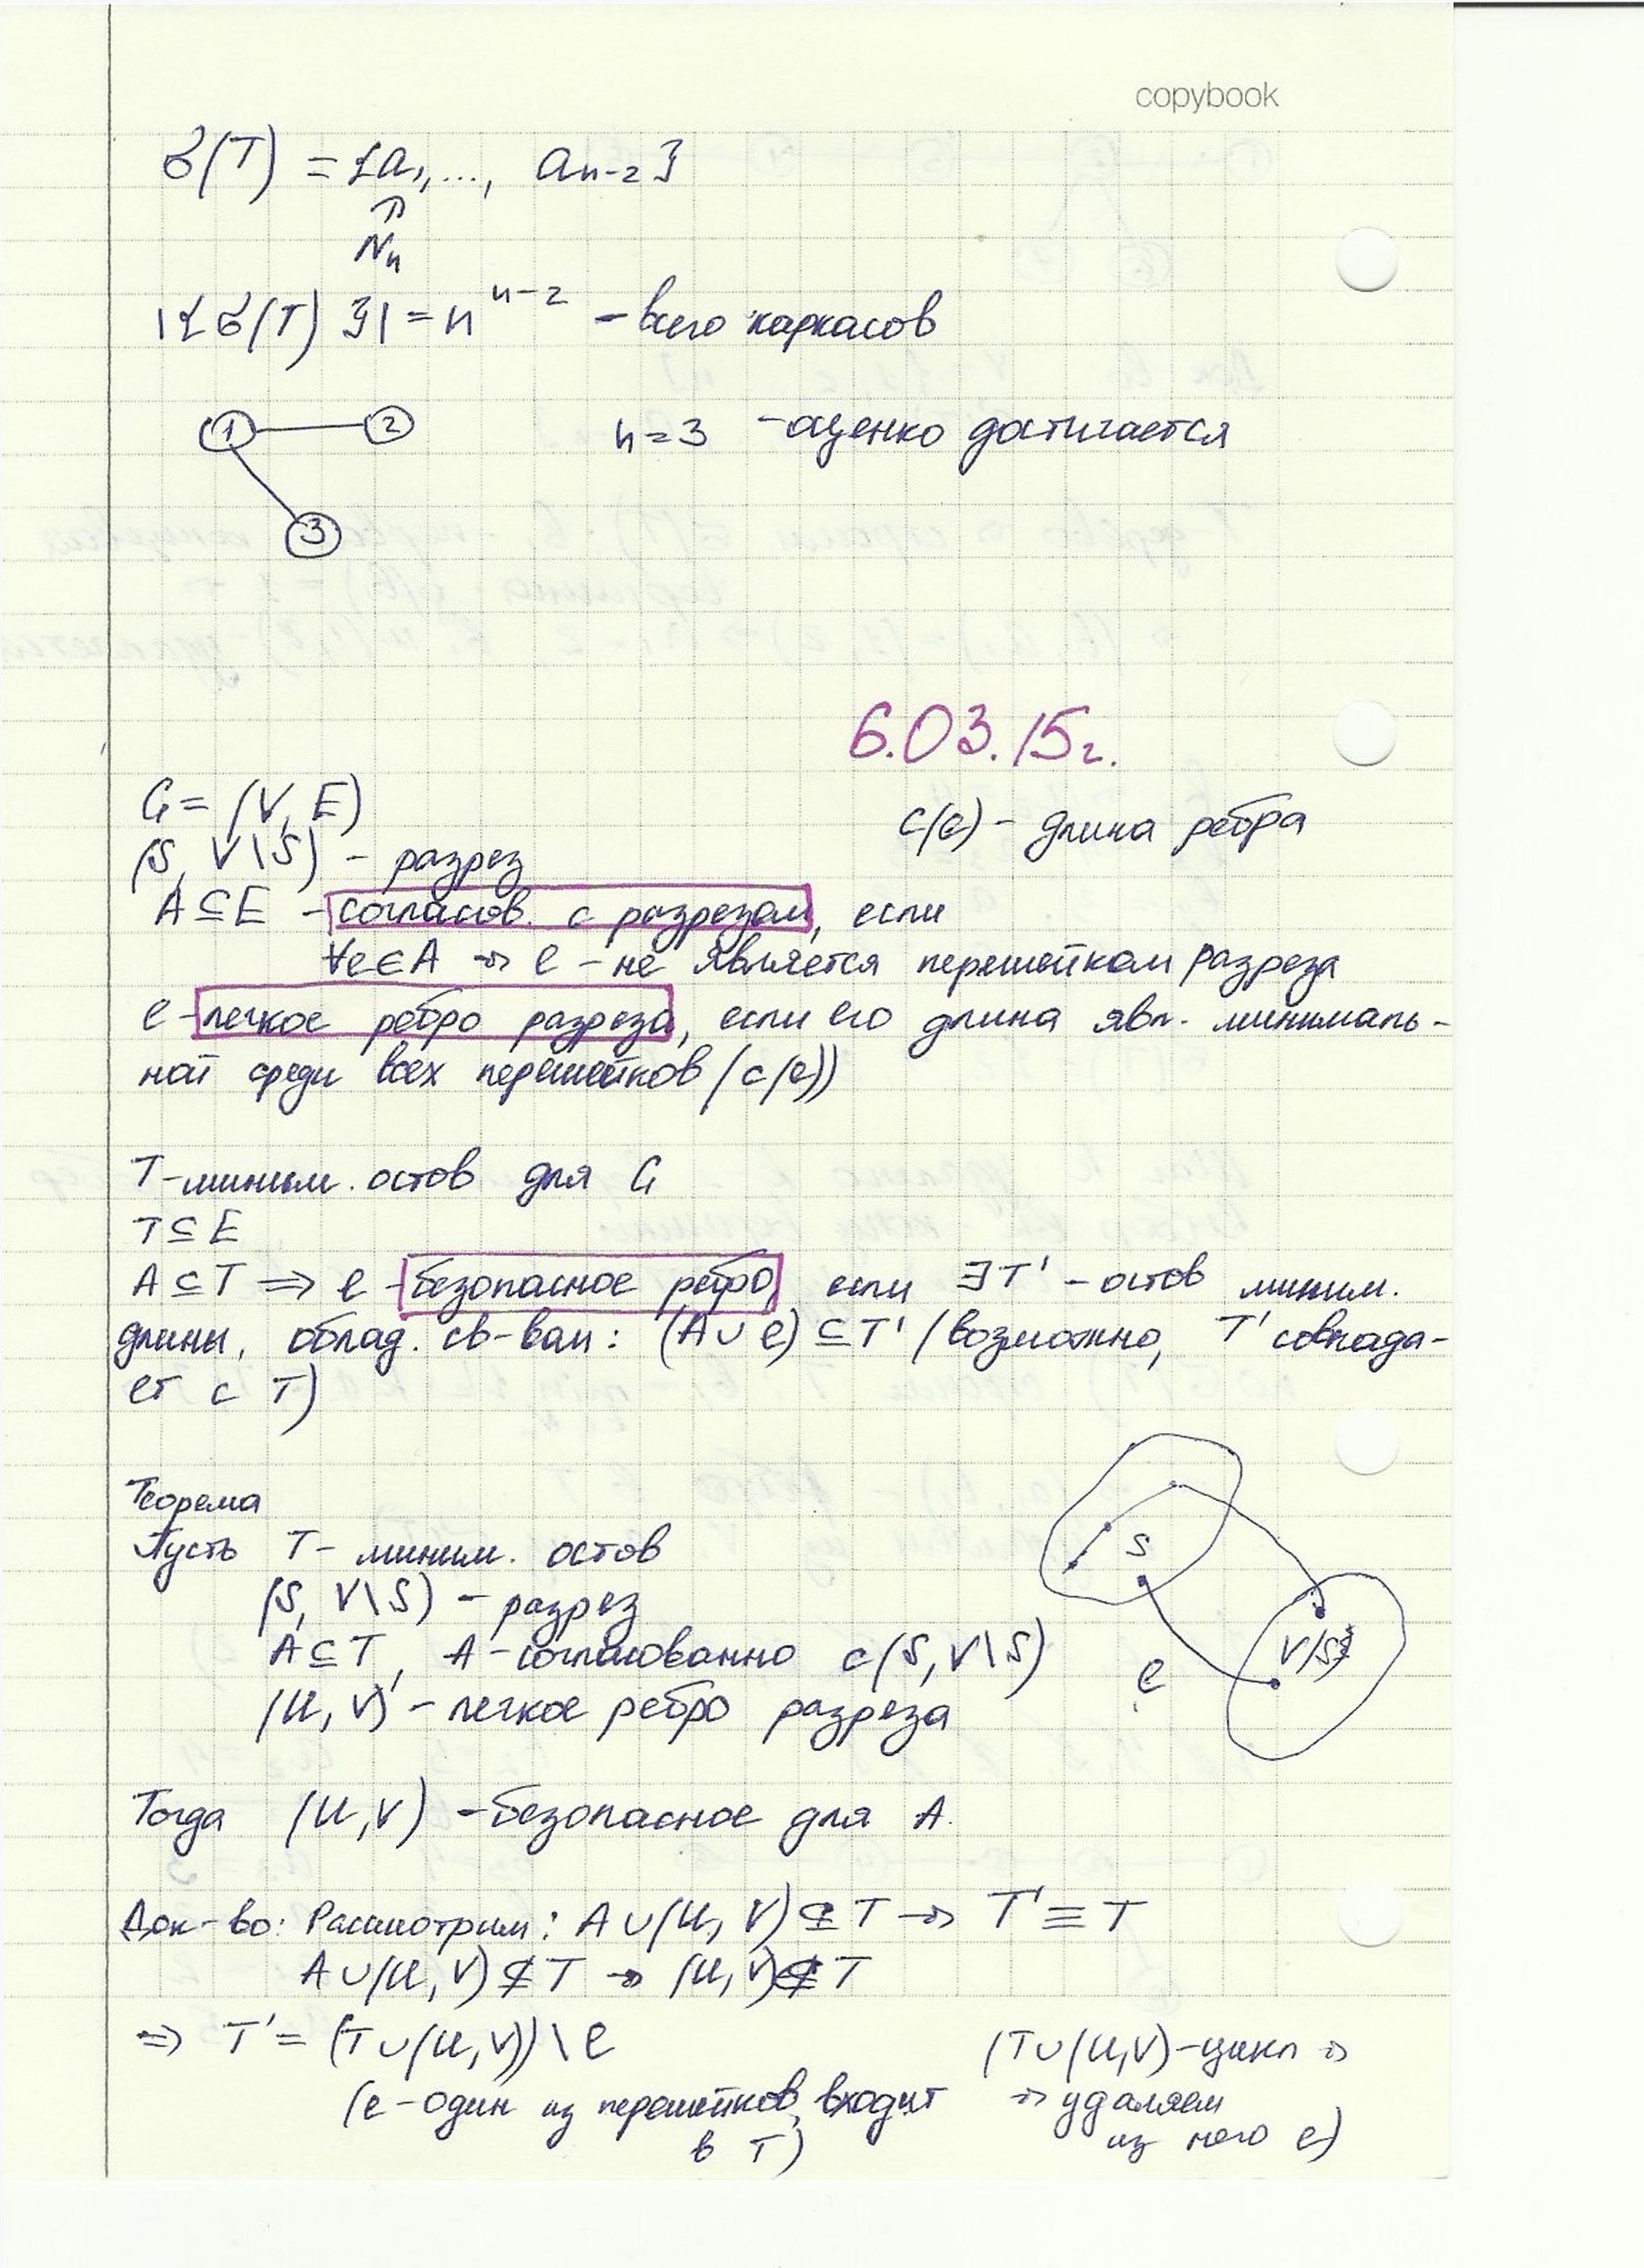 copybook
σ(T) = {a₁,..., aₙ₋₂}
⇑
Nₙ
|{σ(T)}| = n^{n-2} - всего каркасов
1 2
n=3 - оценко достигается
3
6.03.15г.
G = (V, E)
c(e) - длина ребра
(S, V\S) - разрез
A⊆E - согласов. с разрезом, если
∀e∈A ⇒ e - не является перешейком разреза
e - легкое ребро разреза, если его длина явл. минималь-
ной среди всех перешейков (c(e))
T - миним. остов для G
T⊆E
A⊆T ⇒ e - безопасное ребро, если ∃T' - остов миним.
длины, облад. св-вам: (A∪e)⊆T' (возможно, T' совпада-
ет с T)
Теорема
Пусть T - миним. остов
S
(S, V\S) - разрез
A⊆T, A - согласованно с (S, V\S)
V/S
e
(U, V) - легкое ребро разреза
Тогда (U,V) - безопасное для A.
Док-во: Рассмотрим: A∪(U, V)⊆T → T'≡T
A∪(U, V)⊈T → (U,V)⊈T
⇒ T' = (T∪(U,V))\e
(T∪(U,V) - цикл ⇒
(e - один из перешейков, входит
⇒ удаляем
в T)
из него e)